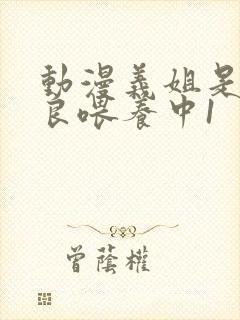 動漫義姐是
良喂養中1
曾蔭權